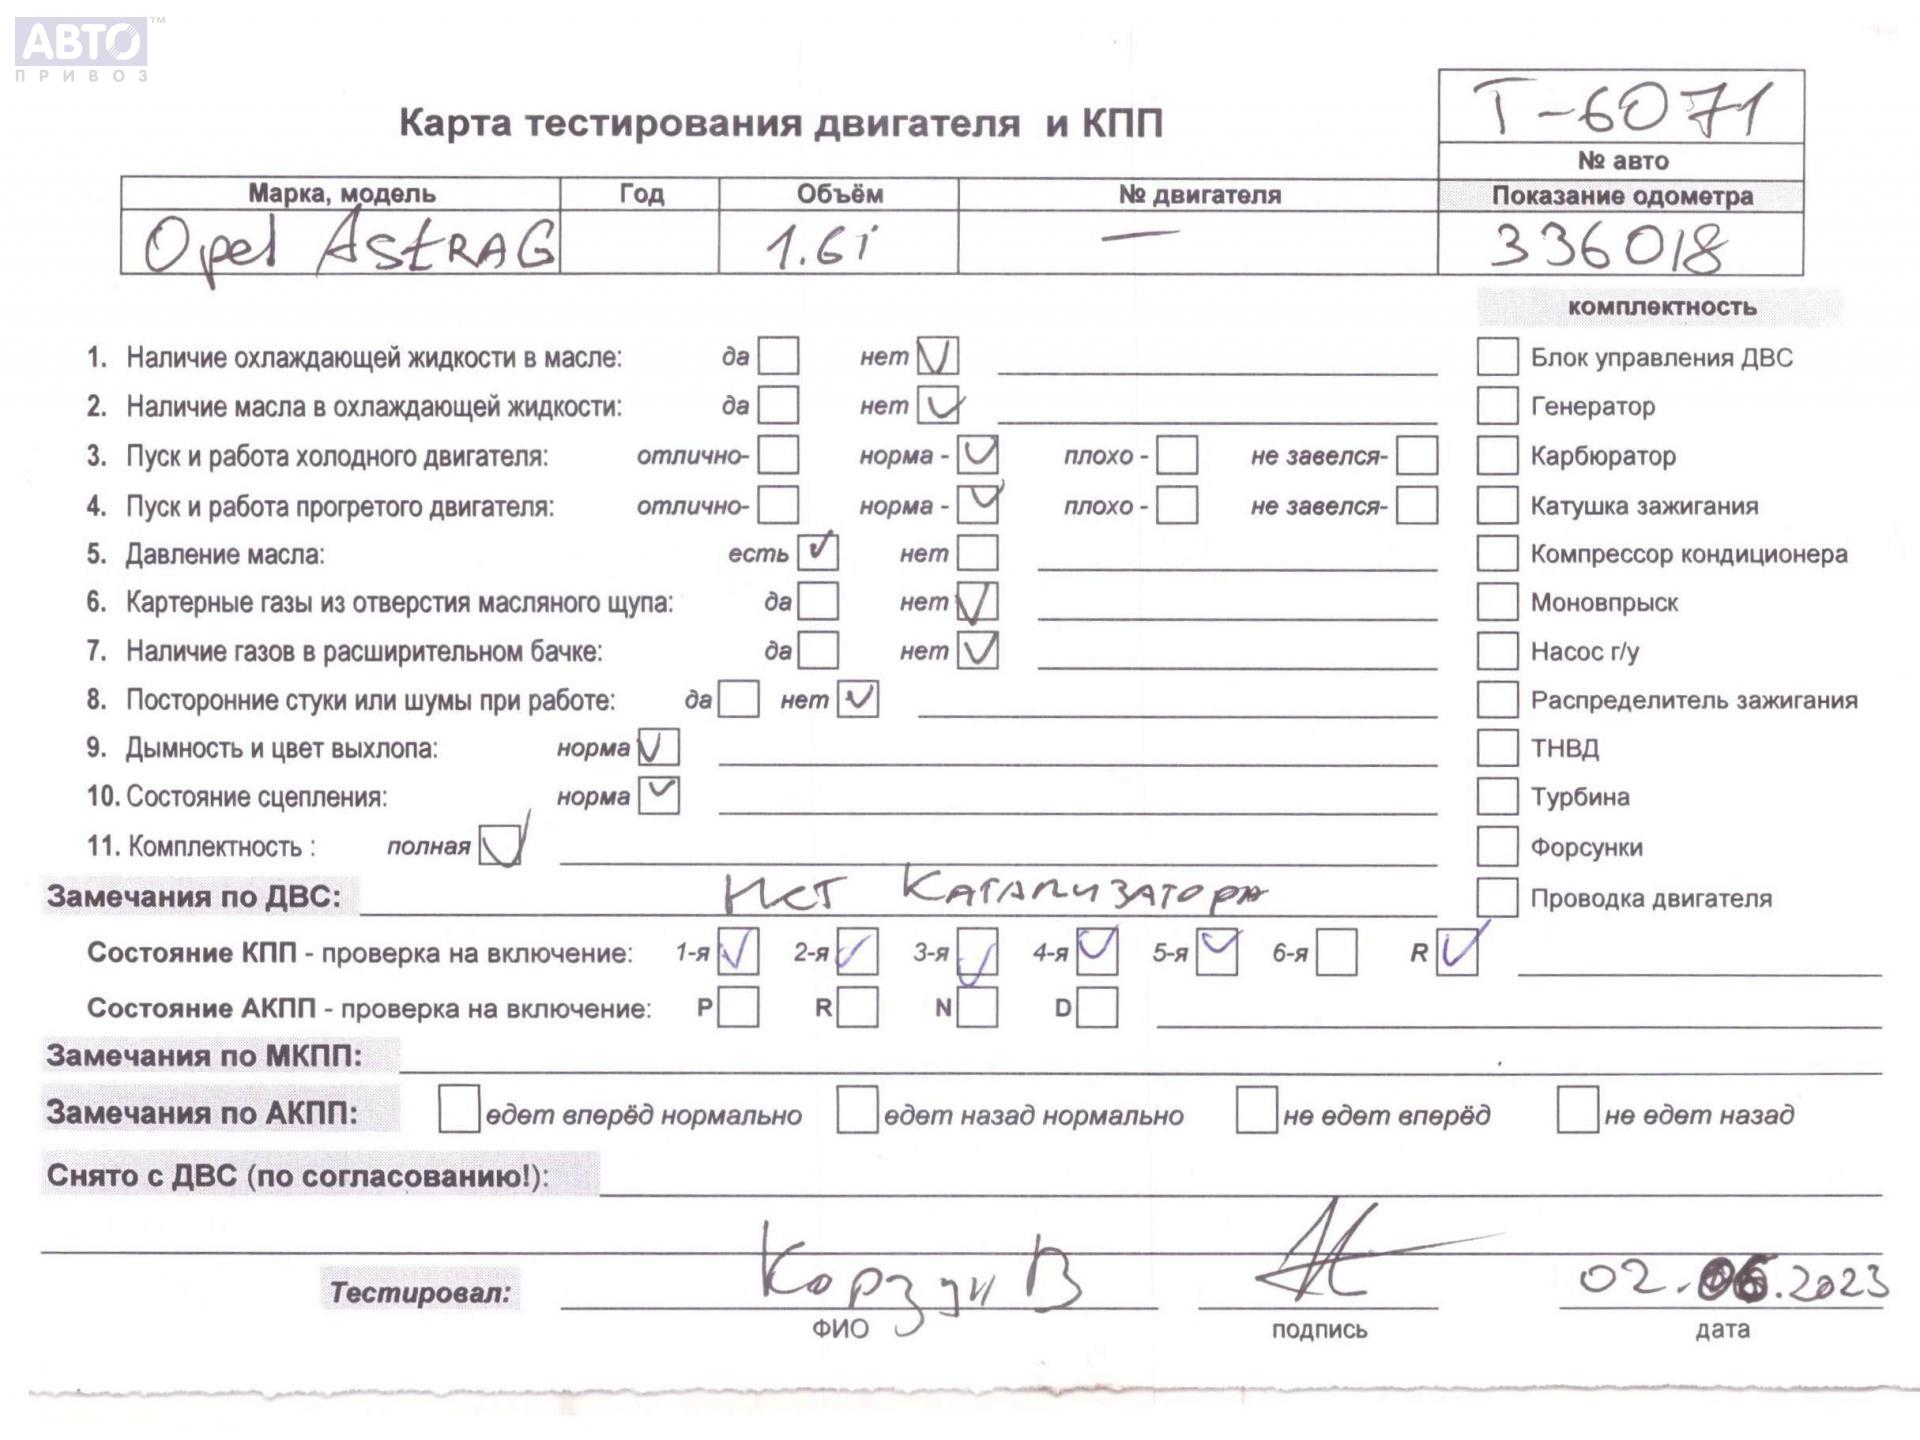 АВТО™
ПРИВОЗ
Т-6071
Карта тестирования двигателя и КПП
№ авто
Марка, модель Год Объём № двигателя Показание одометра
Opel AstRA G 1.6i — 336018
комплектность
1. Наличие охлаждающей жидкости в масле: да нет Блок управления ДВС
2. Наличие масла в охлаждающей жидкости: да нет Генератор
3. Пуск и работа холодного двигателя: отлично- норма - плохо - не завелся- Карбюратор
4. Пуск и работа прогретого двигателя: отлично- норма - плохо - не завелся- Катушка зажигания
5. Давление масла: есть нет Компрессор кондиционера
6. Картерные газы из отверстия масляного щупа: да нет Моновпрыск
7. Наличие газов в расширительном бачке: да нет Насос г/у
8. Посторонние стуки или шумы при работе: да нет Распределитель зажигания
9. Дымность и цвет выхлопа: норма ТНВД
10. Состояние сцепления: норма Турбина
11. Комплектность : полная Форсунки
Замечания по ДВС: Нет Катализатора Проводка двигателя
Состояние КПП - проверка на включение: 1-я 2-я 3-я 4-я 5-я 6-я R
Состояние АКПП - проверка на включение: P R N D
Замечания по МКПП:
Замечания по АКПП: едет вперёд нормально едет назад нормально не едет вперёд не едет назад
Снято с ДВС (по согласованию!):
Тестировал: Корзун В 02.06.2023
ФИО подпись дата